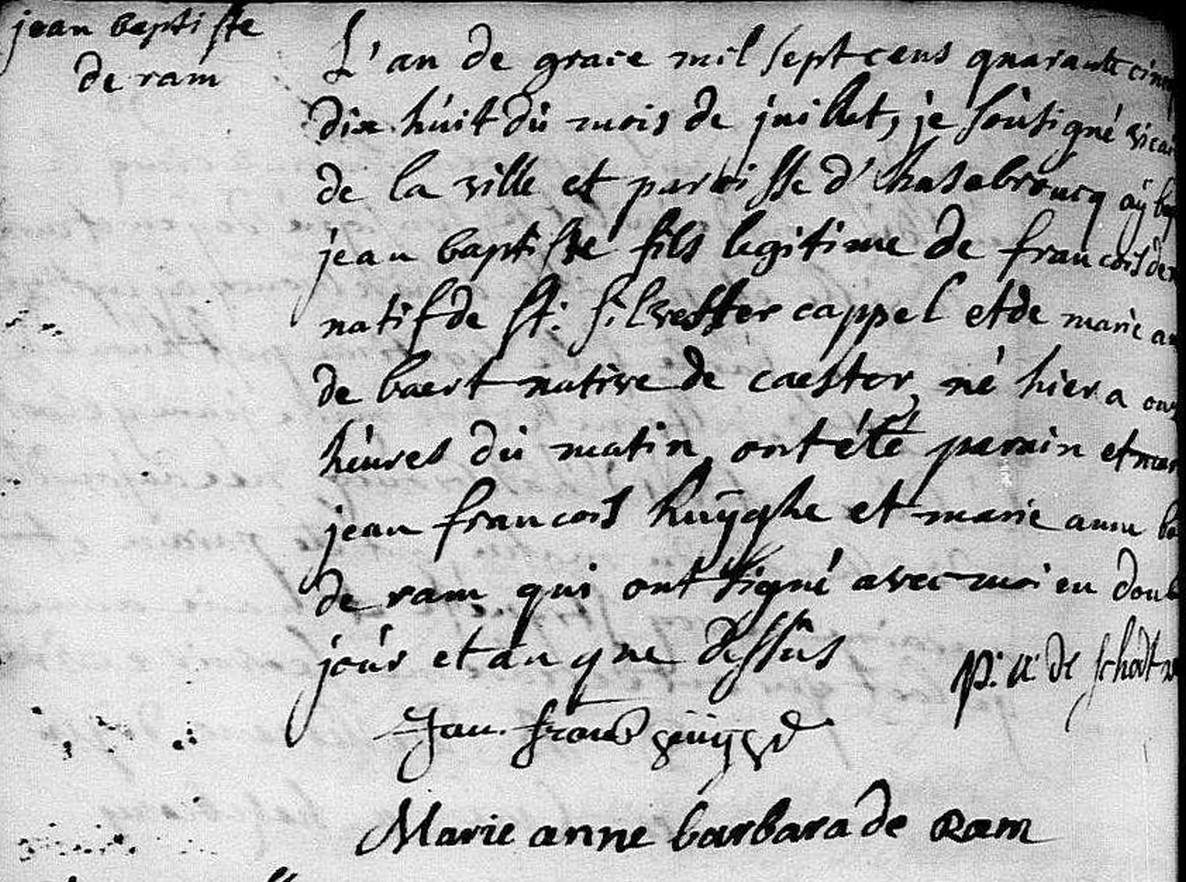 jean baptiste
de ram
L'an de grace mil sept cens quarante cinq
dix huit du mois de juillet, je soûsigné vicai
de la ville et paroisse d'hasebroucq aÿ bap
jean baptiste fils legitime de francois de
natif de St. Silvester cappel et de marie an
de baert native de caester, né hier a onz
héures du matin, ont été parain et mar
jean francois huÿghe et marie anne ba
de ram qui ont signé avec moi en doub
joúr et an que dessús
p. de schodt
Jan
Marie anne barbara de Ram